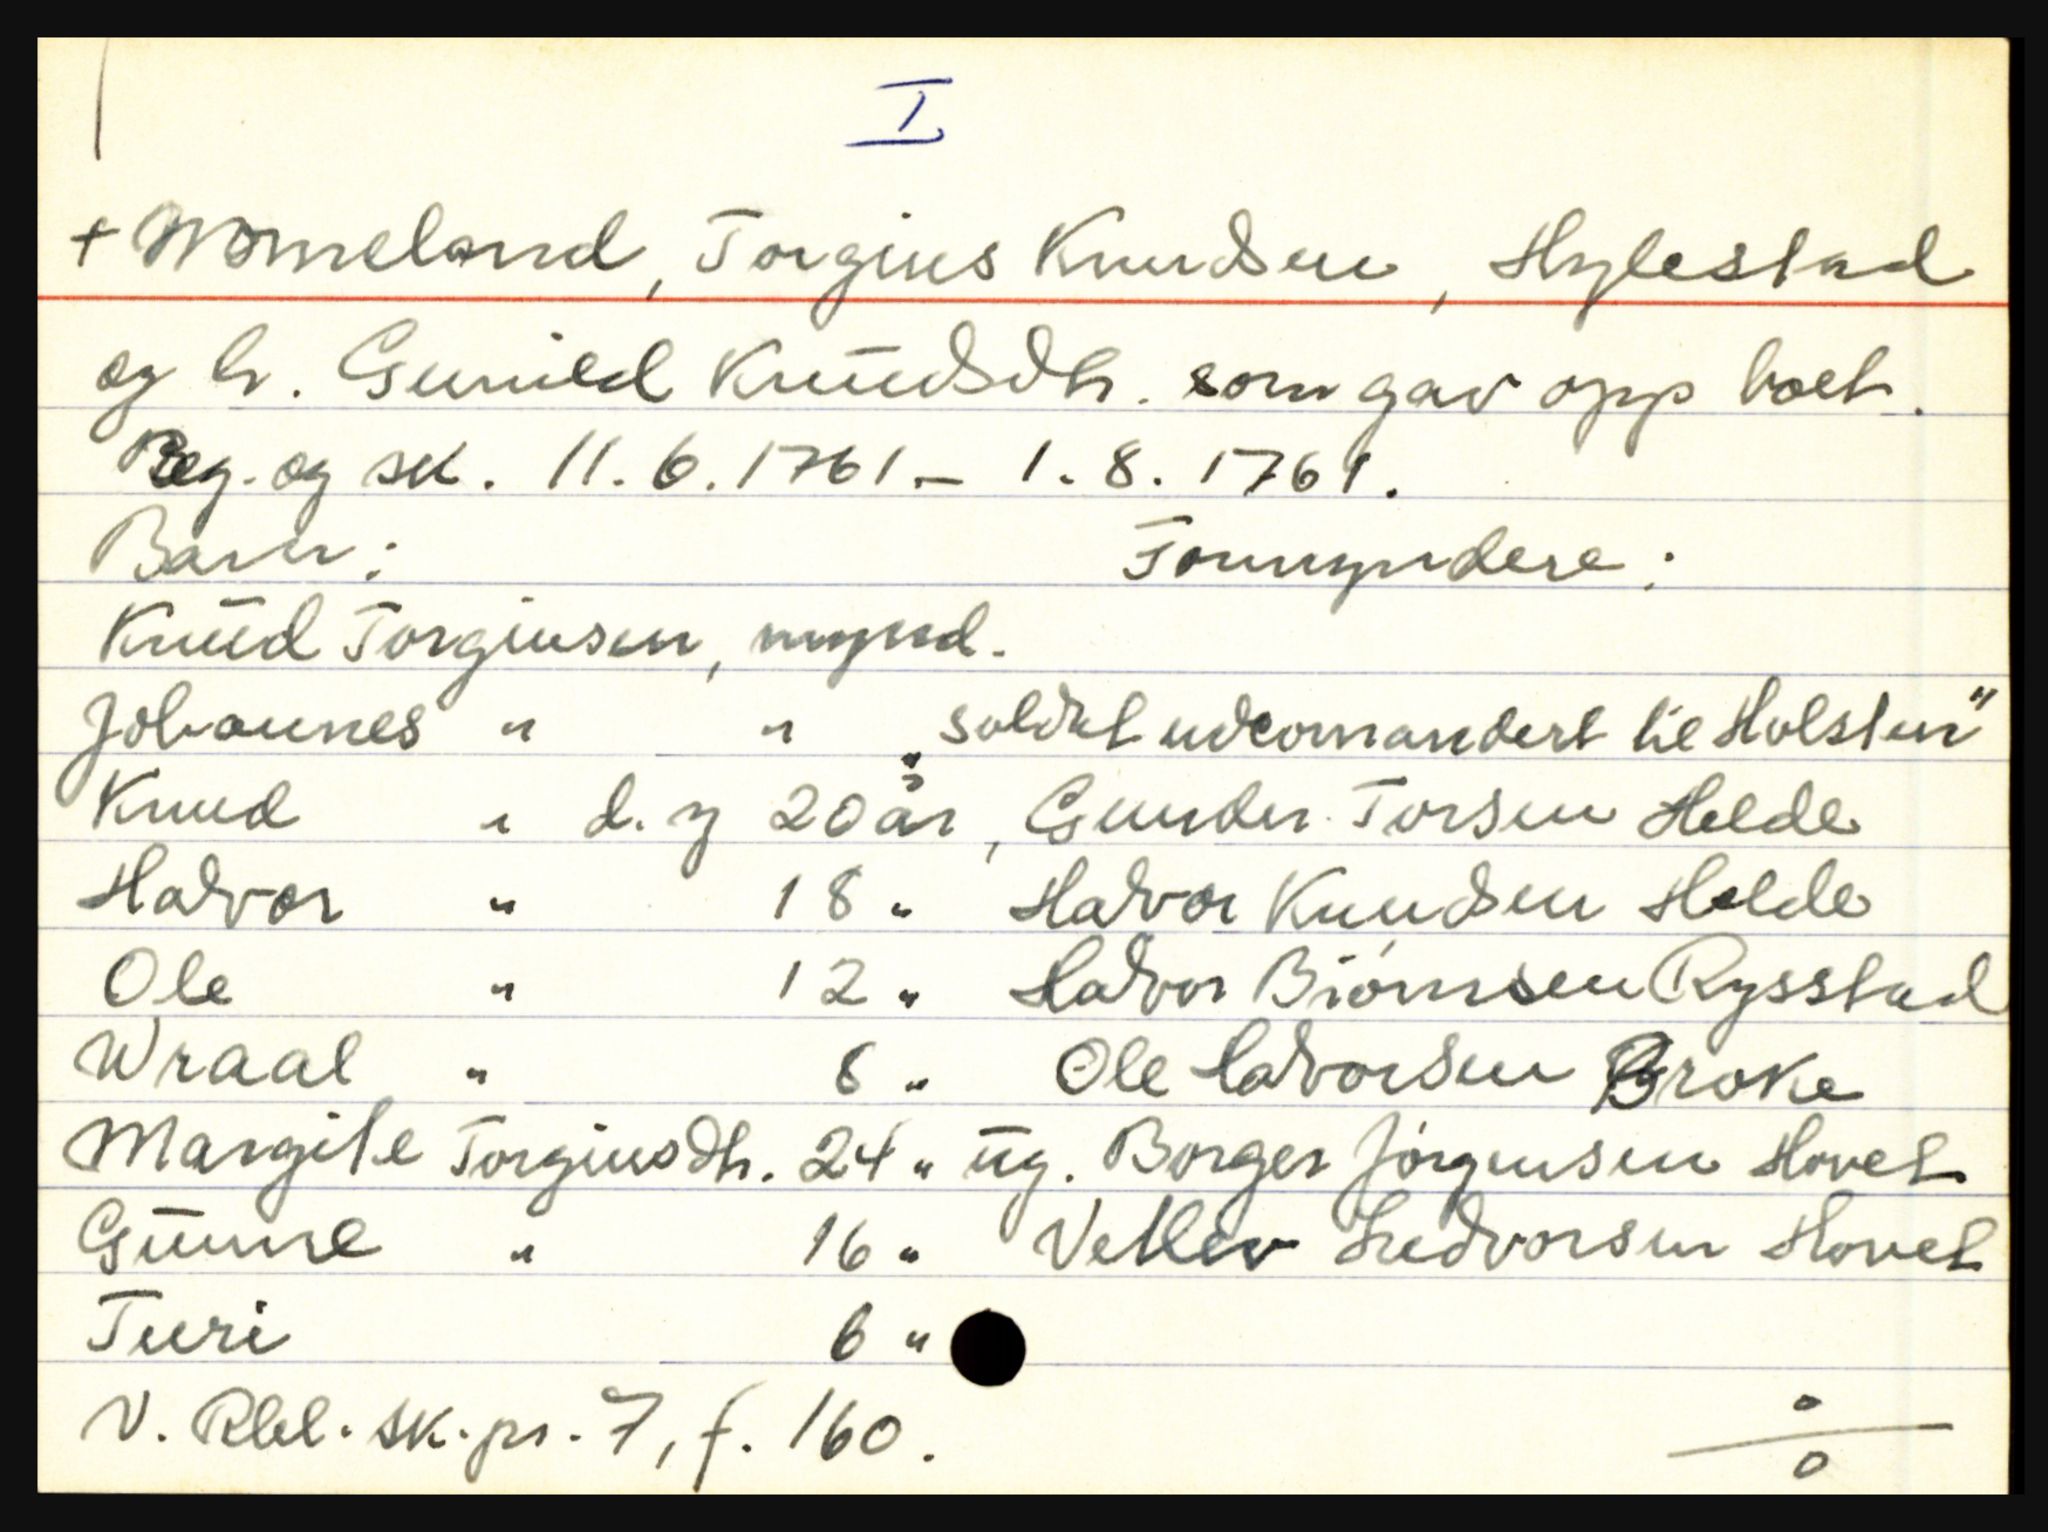 I
+ Momeland, Torgius Knudsen, Hylestad
og h. Gunild Knŭdsdtr. som gav opp boet.
Reg. og sk. 11.6.1761 - 1.8.1761.
Barn: Formyndere:
Knŭd Torgiusen, mynd.
Johannes " " „soldat udcomandert til Holsten"
Knud " d. y 20 år, Gunder Torsen Helde
Halvor " 18 " Halvor Knudsen Helde
Ole " 12 " Halvor Biørnsen Rysstad
Wraal " 8 " Ole Halvorsen Broke
Margite Torgiusdtr. 24 " ŭg. Borger Jörgensen Hovet
Gŭnne " 16 " Hovet
Turi 6 "
V. Rbl. sk. pr. 7, f. 160.